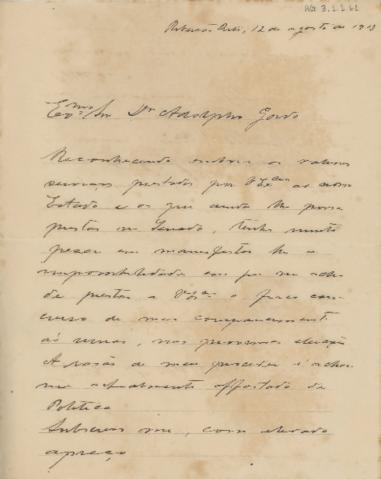 AG 3.1.1.61
Ribeirão Preto, 12 de agosto de 1913
Exmo. Sr. Dr. Adolpho Gordo
Reconhecendo embora os valiosos
serviços prestados por V. Exa. ao nosso
Estado e os que ainda lhe possa
prestar no Senado, tenho muito
pesar em manifestar lhe a
impossibilidade em que me acho
de prestar a V. Exa. o fraco con
curso de meu comparecimento
ás urnas, nas proximas eleições
A rasão de meu proceder é achar
me actualmente affastado da
Politica
Subscrevo me, com elevado
apreço